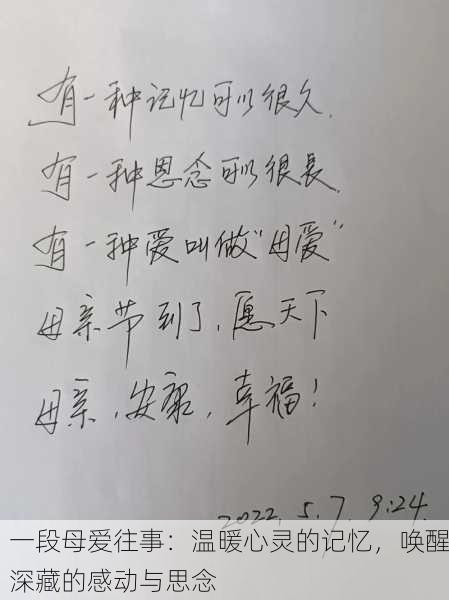 有一种记忆可以很久.
有一种恩念可以很长.
有一种爱叫做"母爱"
母亲节到了,愿天下
母亲,安康,幸福!
2022. 5. 7. 9:24.
一段母爱往事：温暖心灵的记忆，唤醒
深藏的感动与思念